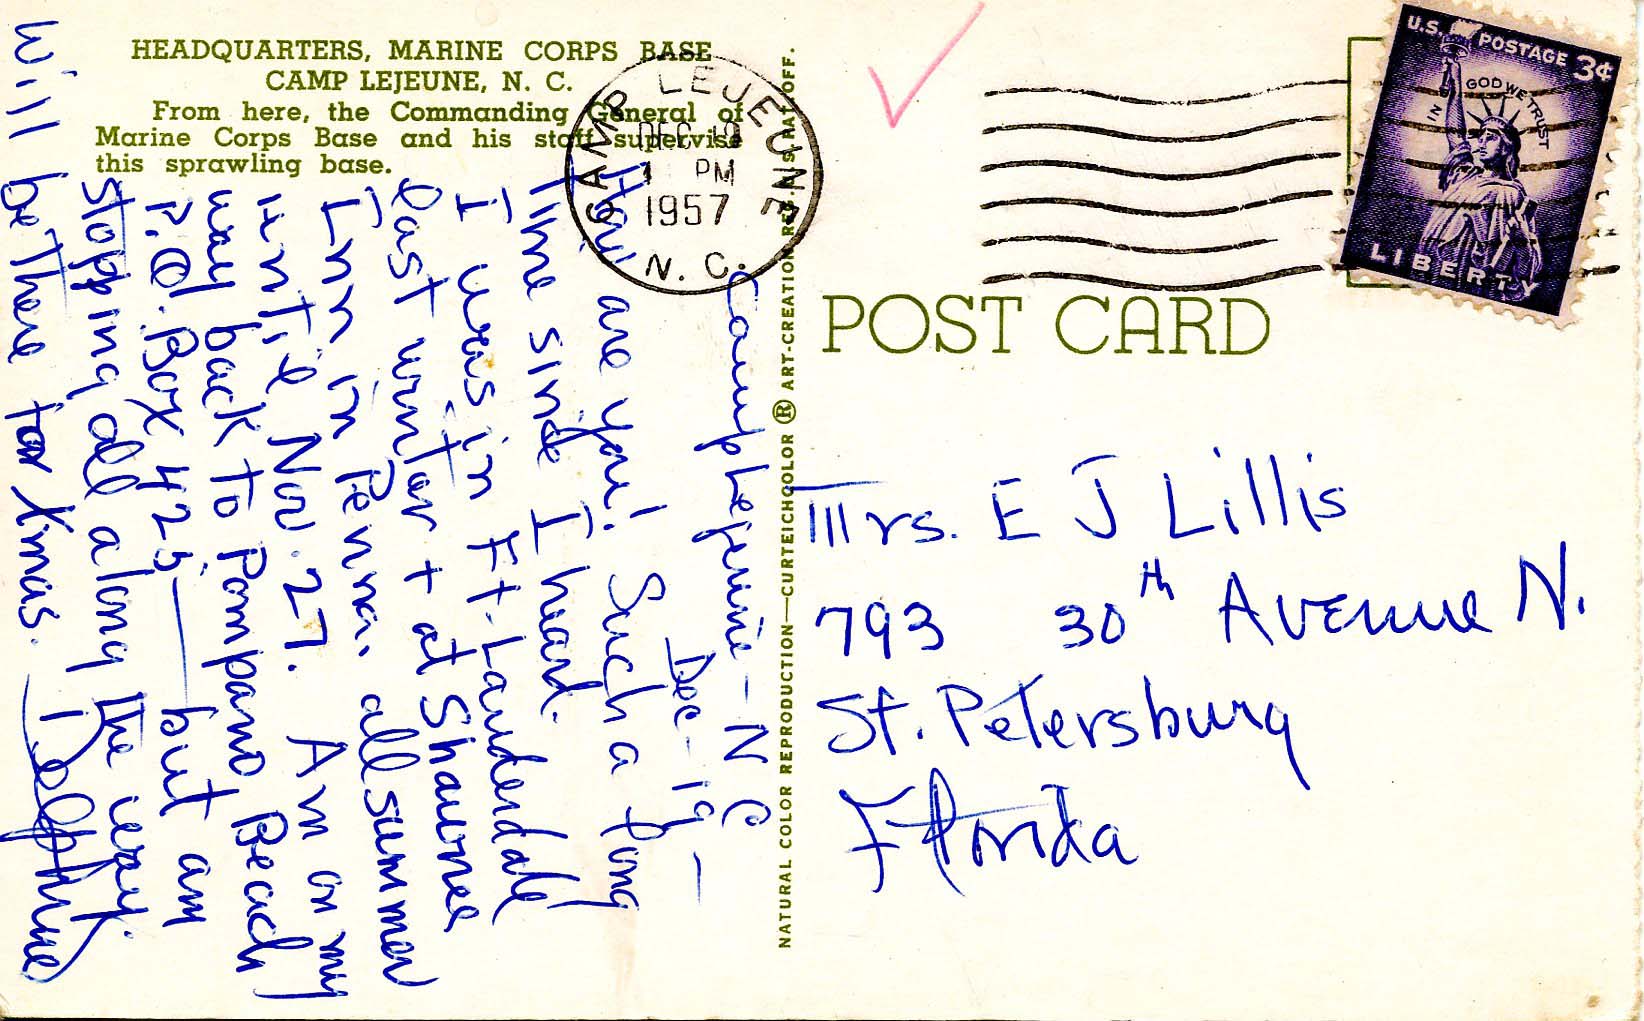 HEADQUARTERS, MARINE CORPS BASE
CAMP LEJEUNE, N. C.
From here, the Commanding General of
Marine Corps Base and his staff supervise
this sprawling base.
CAMP LEJEUNE
DEC 19
1 PM
1957
N. C.
U.S. POSTAGE 3¢
IN GOD WE TRUST
LIBERTY
POST CARD
NATURAL COLOR REPRODUCTION—CURTEICHCOLOR ® ART-CREATION REG. U.S. PAT. OFF.
Camp Lejeune - N C
Dec - 19 -
How are you! Such a long
time since I heard.
I was in Ft. Lauderdale
last winter + at Shawnee
Inn in Penna. all summer
until Nov. 27. Am on my
way back to Pompano Beach
P.O. Box 425 — but am
stopping all along the way.
Will be there for Xmas. Delphine
Mrs. E J Lillis
793 30th Avenue N.
St. Petersburg
Florida